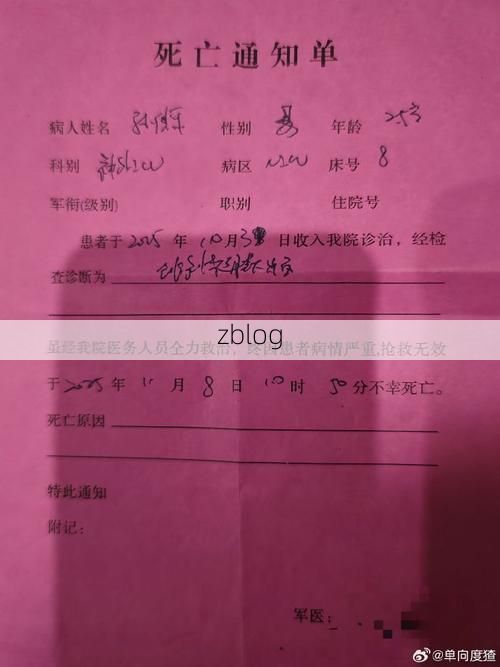 死亡通知单
病人姓名 性别 男 年龄 25岁
科别 病区 床号 8
军衔(级别) 职别 住院号
患者于2025年10月 日收入我院诊治，经检
查诊断为
zblog
虽经我院医务人员全力救治，终因患者病情严重,抢救无效
于2025年11月8日10时50分不幸死亡。
死亡原因
特此通知
附记：
军医：
@单向度猹